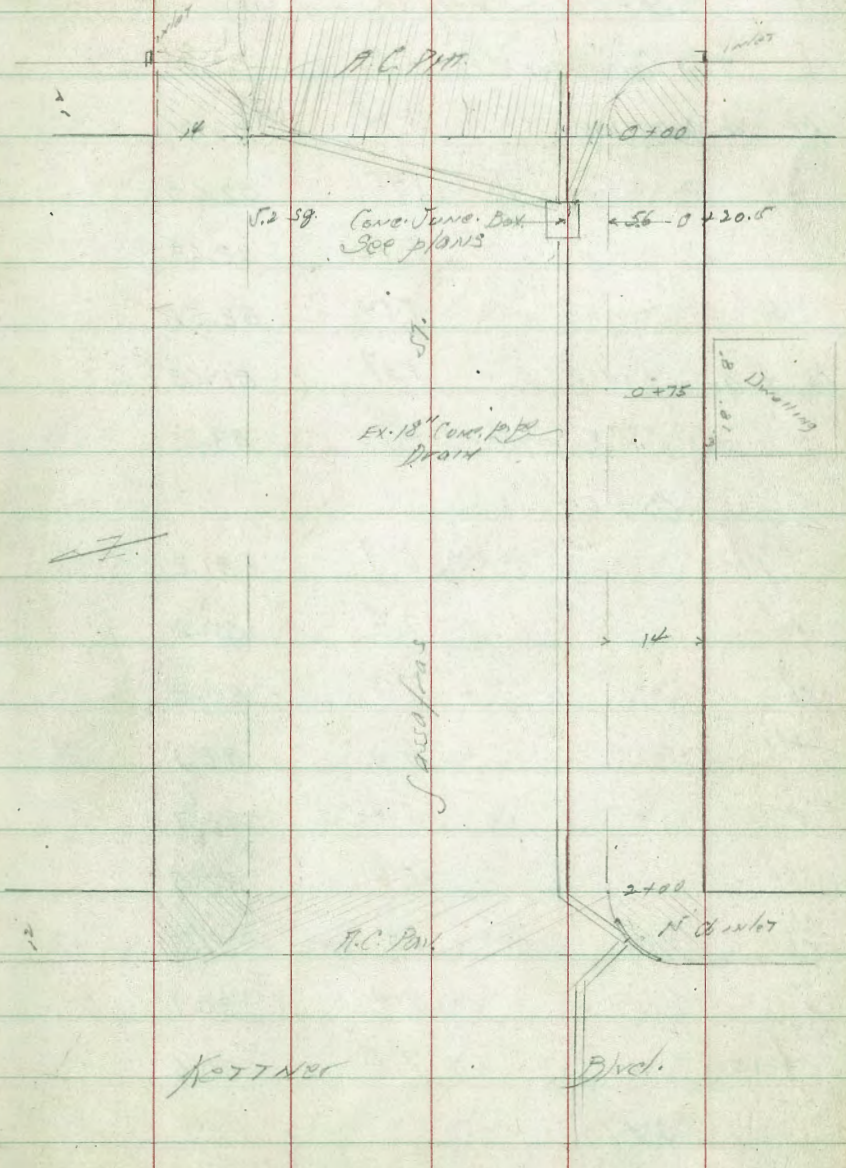 inlet
inlet
A.C. Pvmt.
14
0+00
5.2 sq. Conc. Junc. Box
See plans
5.6 0+20.5
St.
0+75
Dwelling
18.81
Ex. 18" Conc. pipe
Drain
14
Sassafras
2+00
15' Cb inlet
A.C. Pav.
Kettner Blvd.